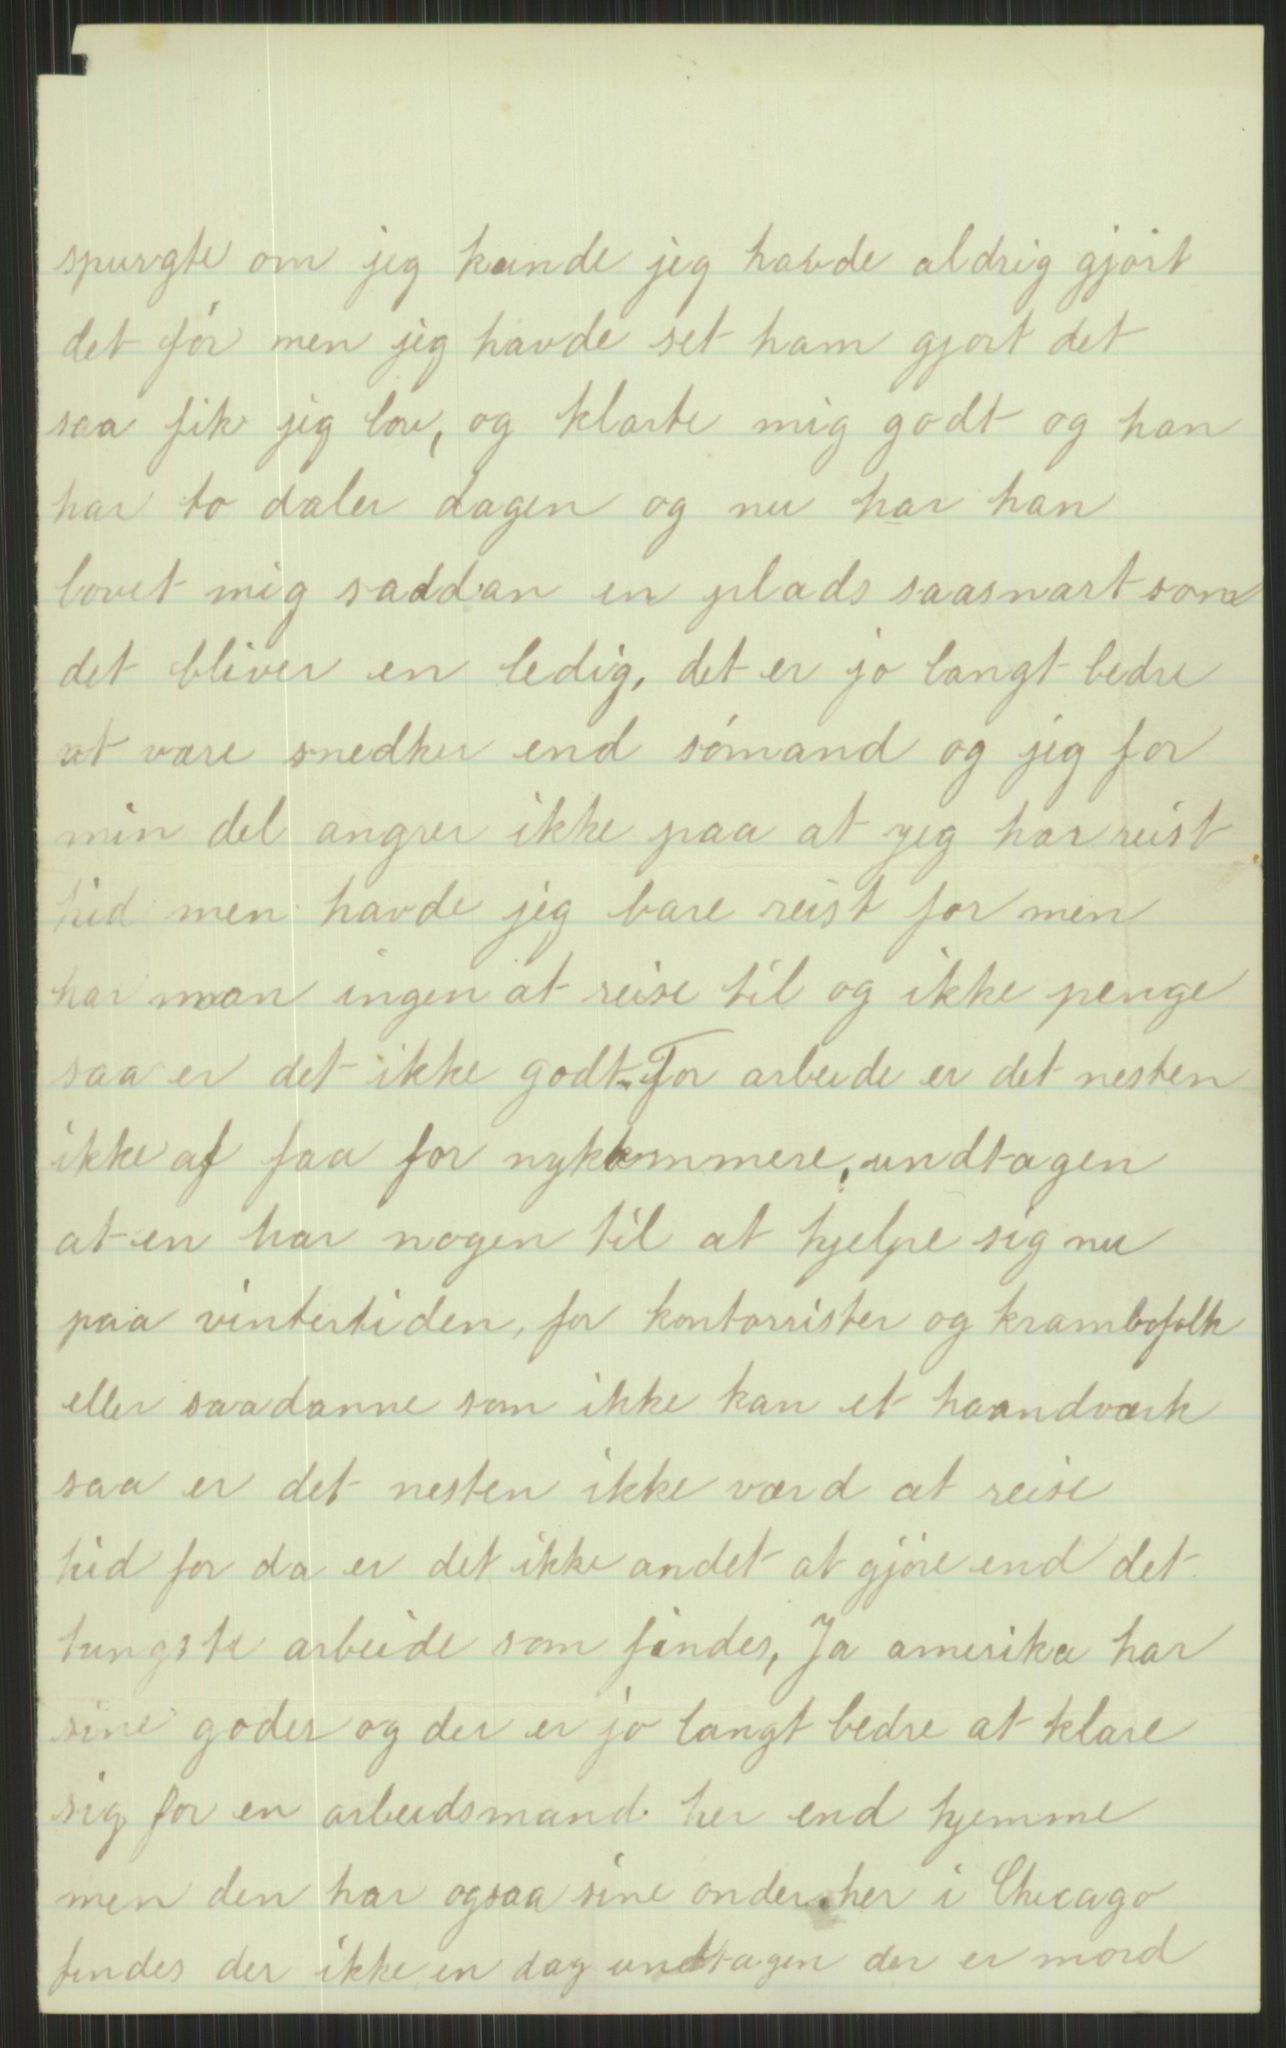 spurgte om jeg kunde jeg havde aldrig gjört
det för men jeg havde set ham gjort det
saa fik jeg lov, og klarte mig godt og han
har to daler dagen og nu har han
lovet mig saddan en plads saasnart som
det bliver en ledig, det er jo langt bedre
at være snedker end sömand og jeg for
min del angrer ikke paa at jeg har reist
hid men havde jeg bare reist för men
har man ingen at reise til og ikke penge
saa er det ikke godt. For arbeide er det nesten
ikke af faa for nykkommere, undtagen
at en har nogen til at hjelpe sig nu
paa vintertiden, for kontorrister og krambofolk
eller saadanne som ikke kan et haandværk
saa er det nesten ikke værd at reise
hid for da er det ikke andet at gjöre end det
tungste arbeide som findes, Ja amerika har
sine goder og der er jo langt bedre at klare
sig for en arbeidsmand her end hjemme
men den har ogsaa sine onder. her i Chicago
findes der ikke en dag undtagen der er mord